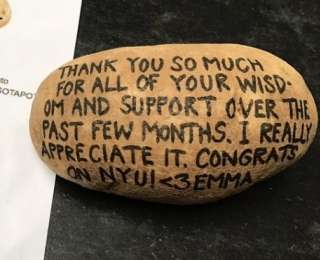 to
SOTAPOT
THANK YOU SO MUCH
FOR ALL OF YOUR WISD-
OM AND SUPPORT OVER THE
PAST FEW MONTHS. I REALLY
APPRECIATE IT. CONGRATS
ON NYU! <3 EMMA